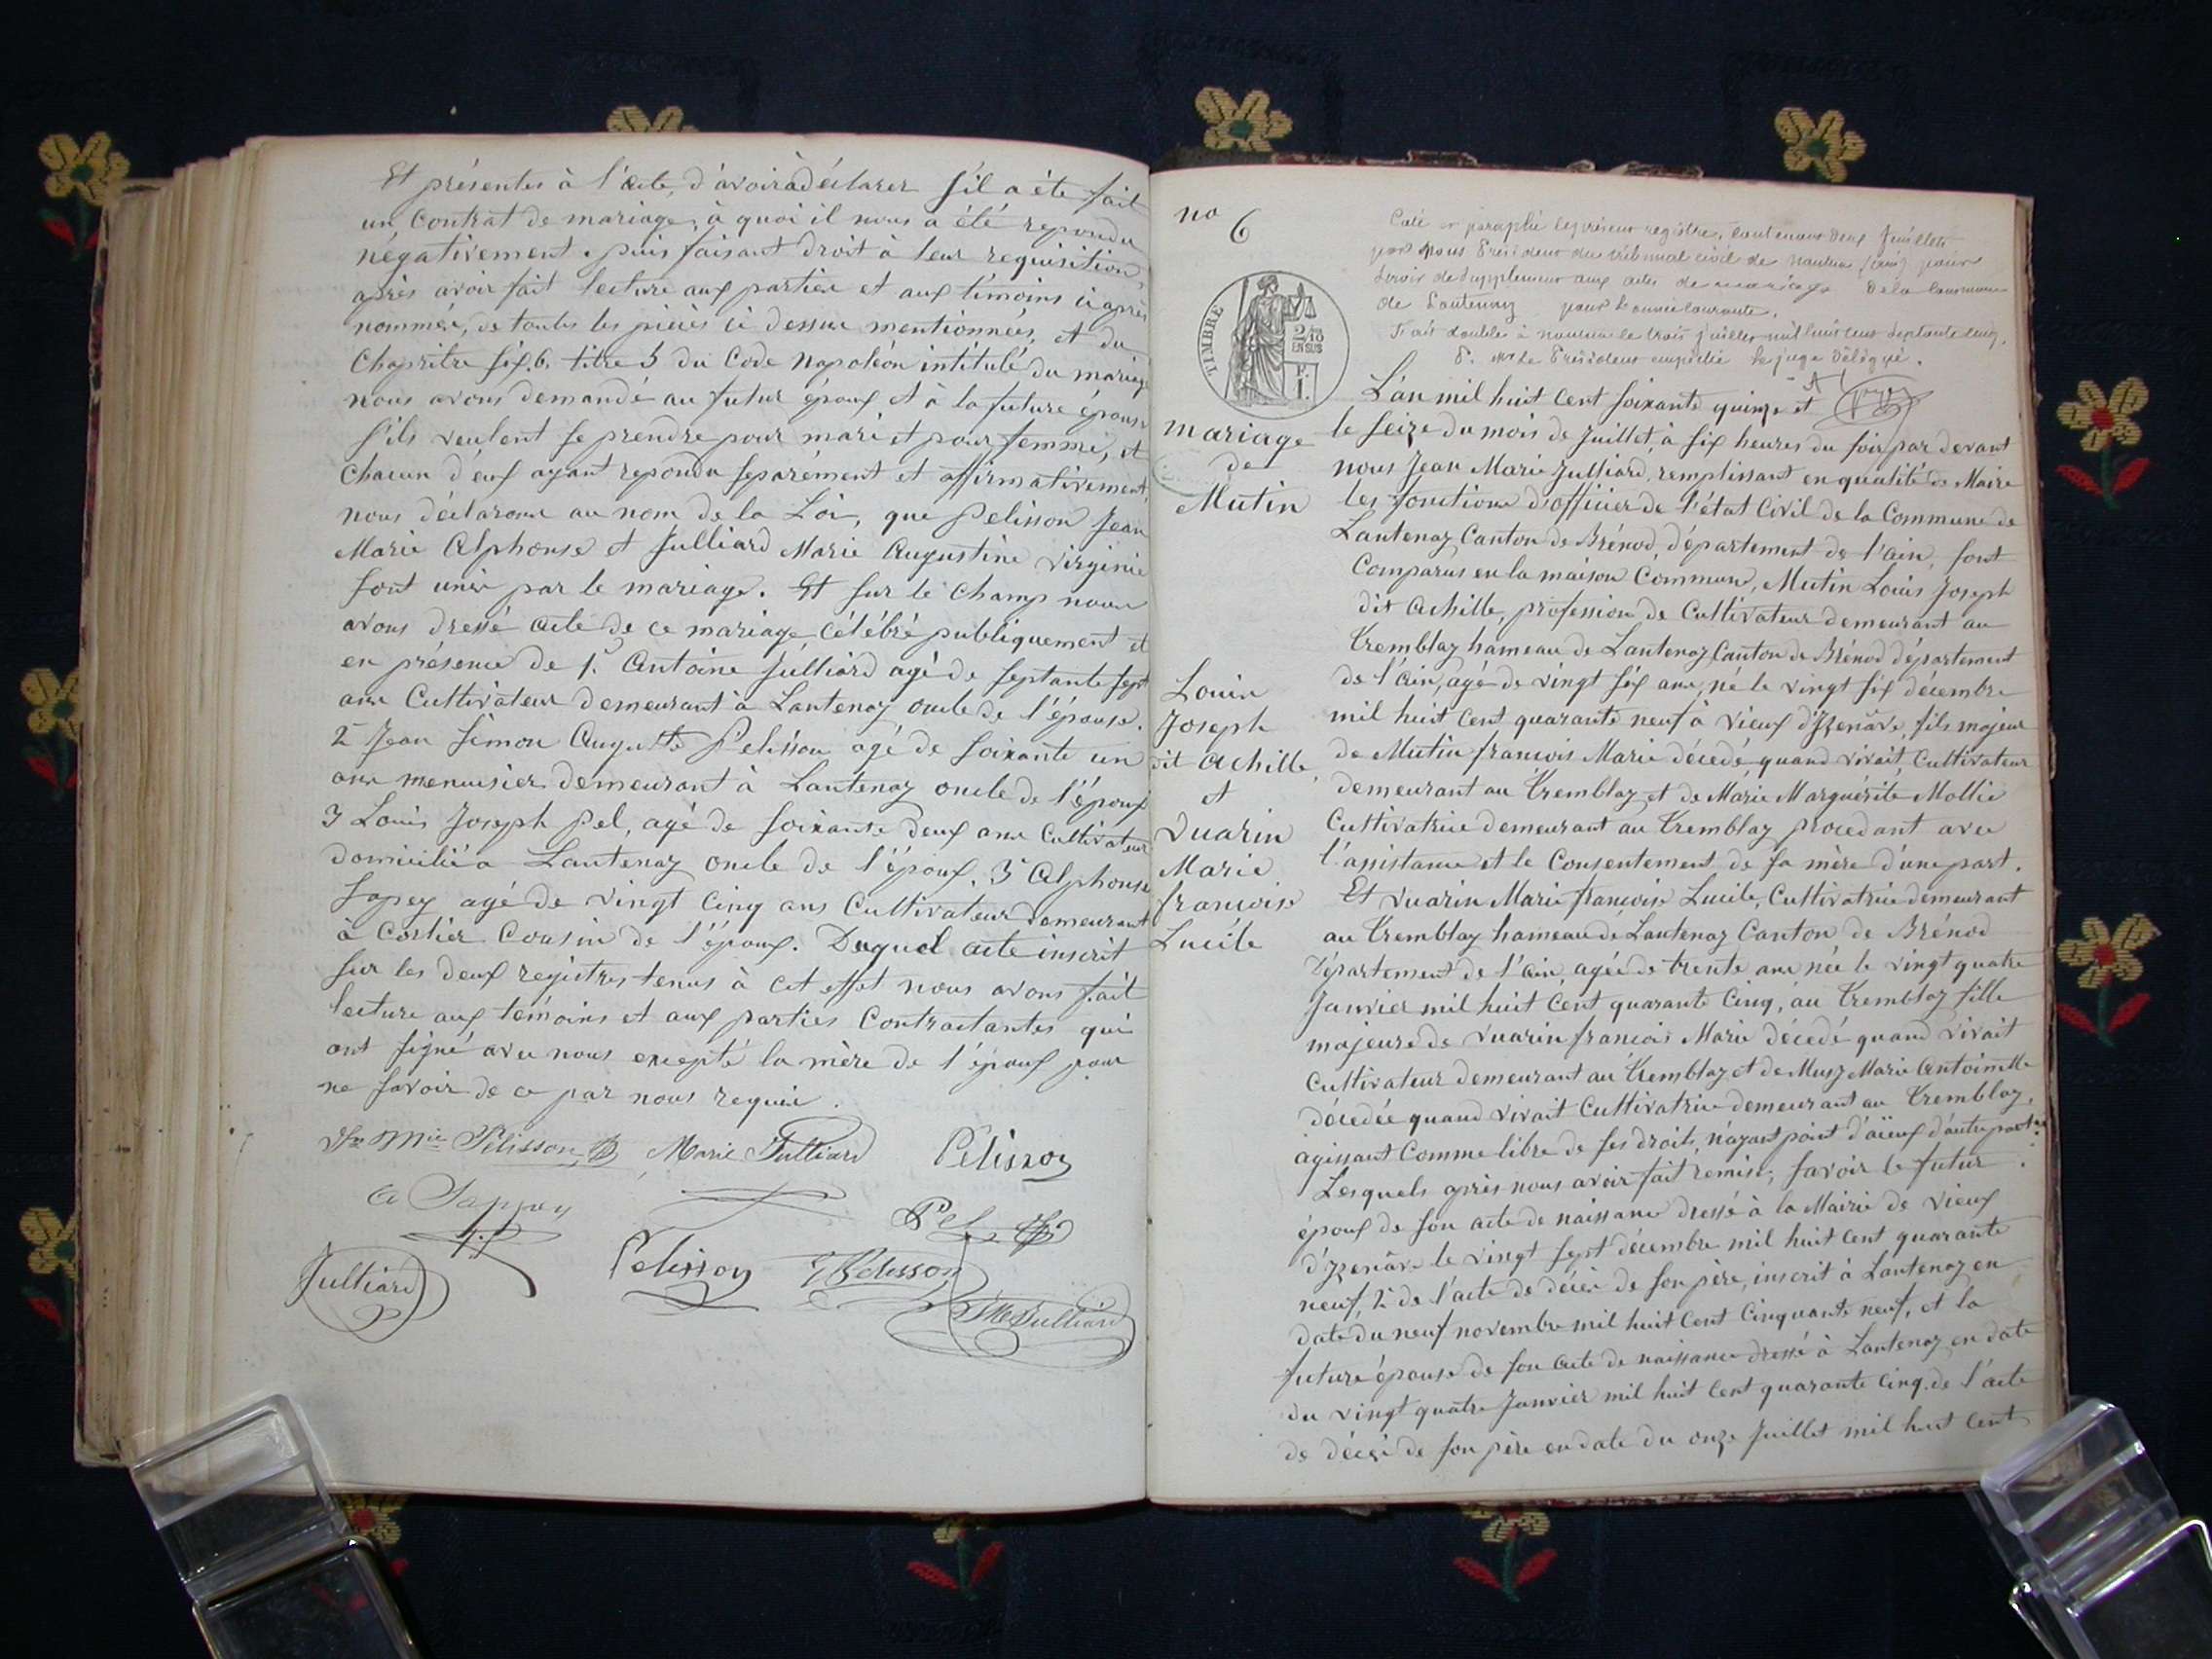 Et présentes à l'acte, d'avoir à déclarer s'il a été fait
un Contrat de mariage, à quoi il nous a été repondu
négativement. puis faisant droit à leur requisition,
après avoir fait lecture aux parties et aux témoins ci après
nommés, de toutes les pièces ci dessus mentionnées, et du
Chapitre six. 6. titre 5 du Code Napoléon intitulé du mariage
nous avons demandé au futur époux et à la future épouse
s'ils veulent se prendre pour mari et pour femme, et
Chacun d'eux ayant repondu separément et affirmativement,
nous déclarons au nom de la Loi, que Pelisson Jean
Marie Alphonse et Julliard Marie Augustine Virginie
sont unis par le mariage. Et sur le champ nous
avons dressé acte de ce mariage célébré publiquement et
en présence de 1° Antoine Julliard agé de septante sept
ans Cultivateur demeurant à Lantenay oncle de l'épouse.
2° Jean Simon Auguste Pelisson agé de soixante un
ans menuisier demeurant à Lantenay oncle de l'époux
3 Louis Joseph Pel, agé de soixante deux ans Cultivateur
domicilié a Lantenay oncle de l'époux. 3° Alphonse
Sapey agé de vingt cinq ans Cultivateur demeurant
à Corlier Cousin de l'époux. Duquel acte inscrit
sur les deux registres tenus à cet effet nous avons fait
lecture aux témoins et aux parties Contractantes qui
ont signé avec nous excepté la mère de l'époux pour
ne savoir de ce par nous requise.
Jn Mie Pelisson Marie Julliard Pélisson
A Sappey Pel
Julliard Pelisson Pelisson
JM Julliard
no 6
Coté et paraphé le présent registre, contenant deux feuillets
par Nous Président du tribunal civil de Nantua (Ain) pour
servir de supplément aux actes de mariage De la Commune
de Lantenay pour l'année courante.
Fait double à Nantua le trois juillet mil huit cent septante cinq.
P. Mr le Président empêché le juge délégué.
TIMBRE
2/10
EN SUS
mariage
de
Mutin
Louis
Joseph
dit Achille
et
Vuarin
Marie
françoise
Lucile
L'an mil huit cent soixante quinze et
le seize du mois de Juillet, à six heures du soir par devant
nous Jean Marie Julliard, remplissant en qualité de Maire
les fonctions d'officier de l'état Civil de la Commune de
Lantenay Canton de Brénod, département de l'ain, sont
Comparus en la maison Commune, Mutin Louis Joseph
dit Achille, profession de Cultivateur demeurant au
Tremblay hameau de Lantenay Canton de Brénod département
de l'Ain, agé de vingt six ans, né le vingt six décembre
mil huit cent quarante neuf à Vieux d'Izenave, fils majeur
de Mutin françois Marie décedé quand vivait Cultivateur
demeurant au Tremblay et de Marie Marguérite Mollie
Cultivatrice demeurant au Tremblay procedant avec
l'assistance et le Consentement de sa mère d'une part.
Et Vuarin Marie françoise Lucile, Cultivatrice demeurant
au Tremblay hameau de Lantenay Canton de Brénod
Département de l'ain agée de trente ans née le vingt quatre
Janvier mil huit cent quarante Cinq, au Tremblay fille
majeure de Vuarin françois Marie décedé quand vivait
Cultivateur demeurant au Tremblay et de Musy Marie Antoinette
décedée quand vivait Cultivatrice demeurant au Tremblay,
agissant Comme libre de ses droits, n'ayant point d'aïeux d'autre part.
Lesquels après nous avoir fait remise; savoir le futur
époux de son acte de naissance dressé à la Mairie de Vieux
d'Izenave le vingt sept décembre mil huit cent quarante
neuf, 2° de l'acte de décès de son père, inscrit à Lantenay en
date du neuf novembre mil huit cent Cinquante neuf, et la
future épouse de son acte de naissance dressé à Lantenay en date
du vingt quatre Janvier mil huit cent quarante cinq. de l'acte
de décès de son père en date du onze Juillet mil huit cent